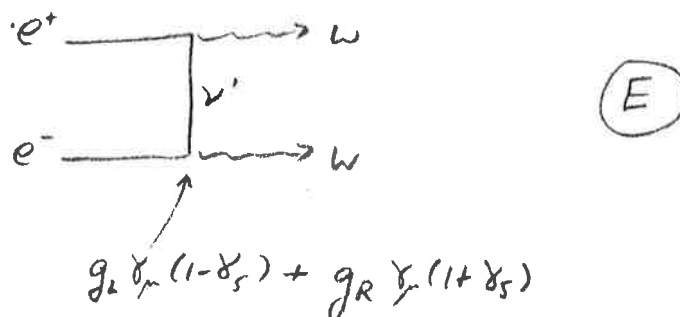 e⁺ w
ν' E
e⁻ w
g_L γ_μ (1-γ_5) + g_R γ_μ (1+γ_5)